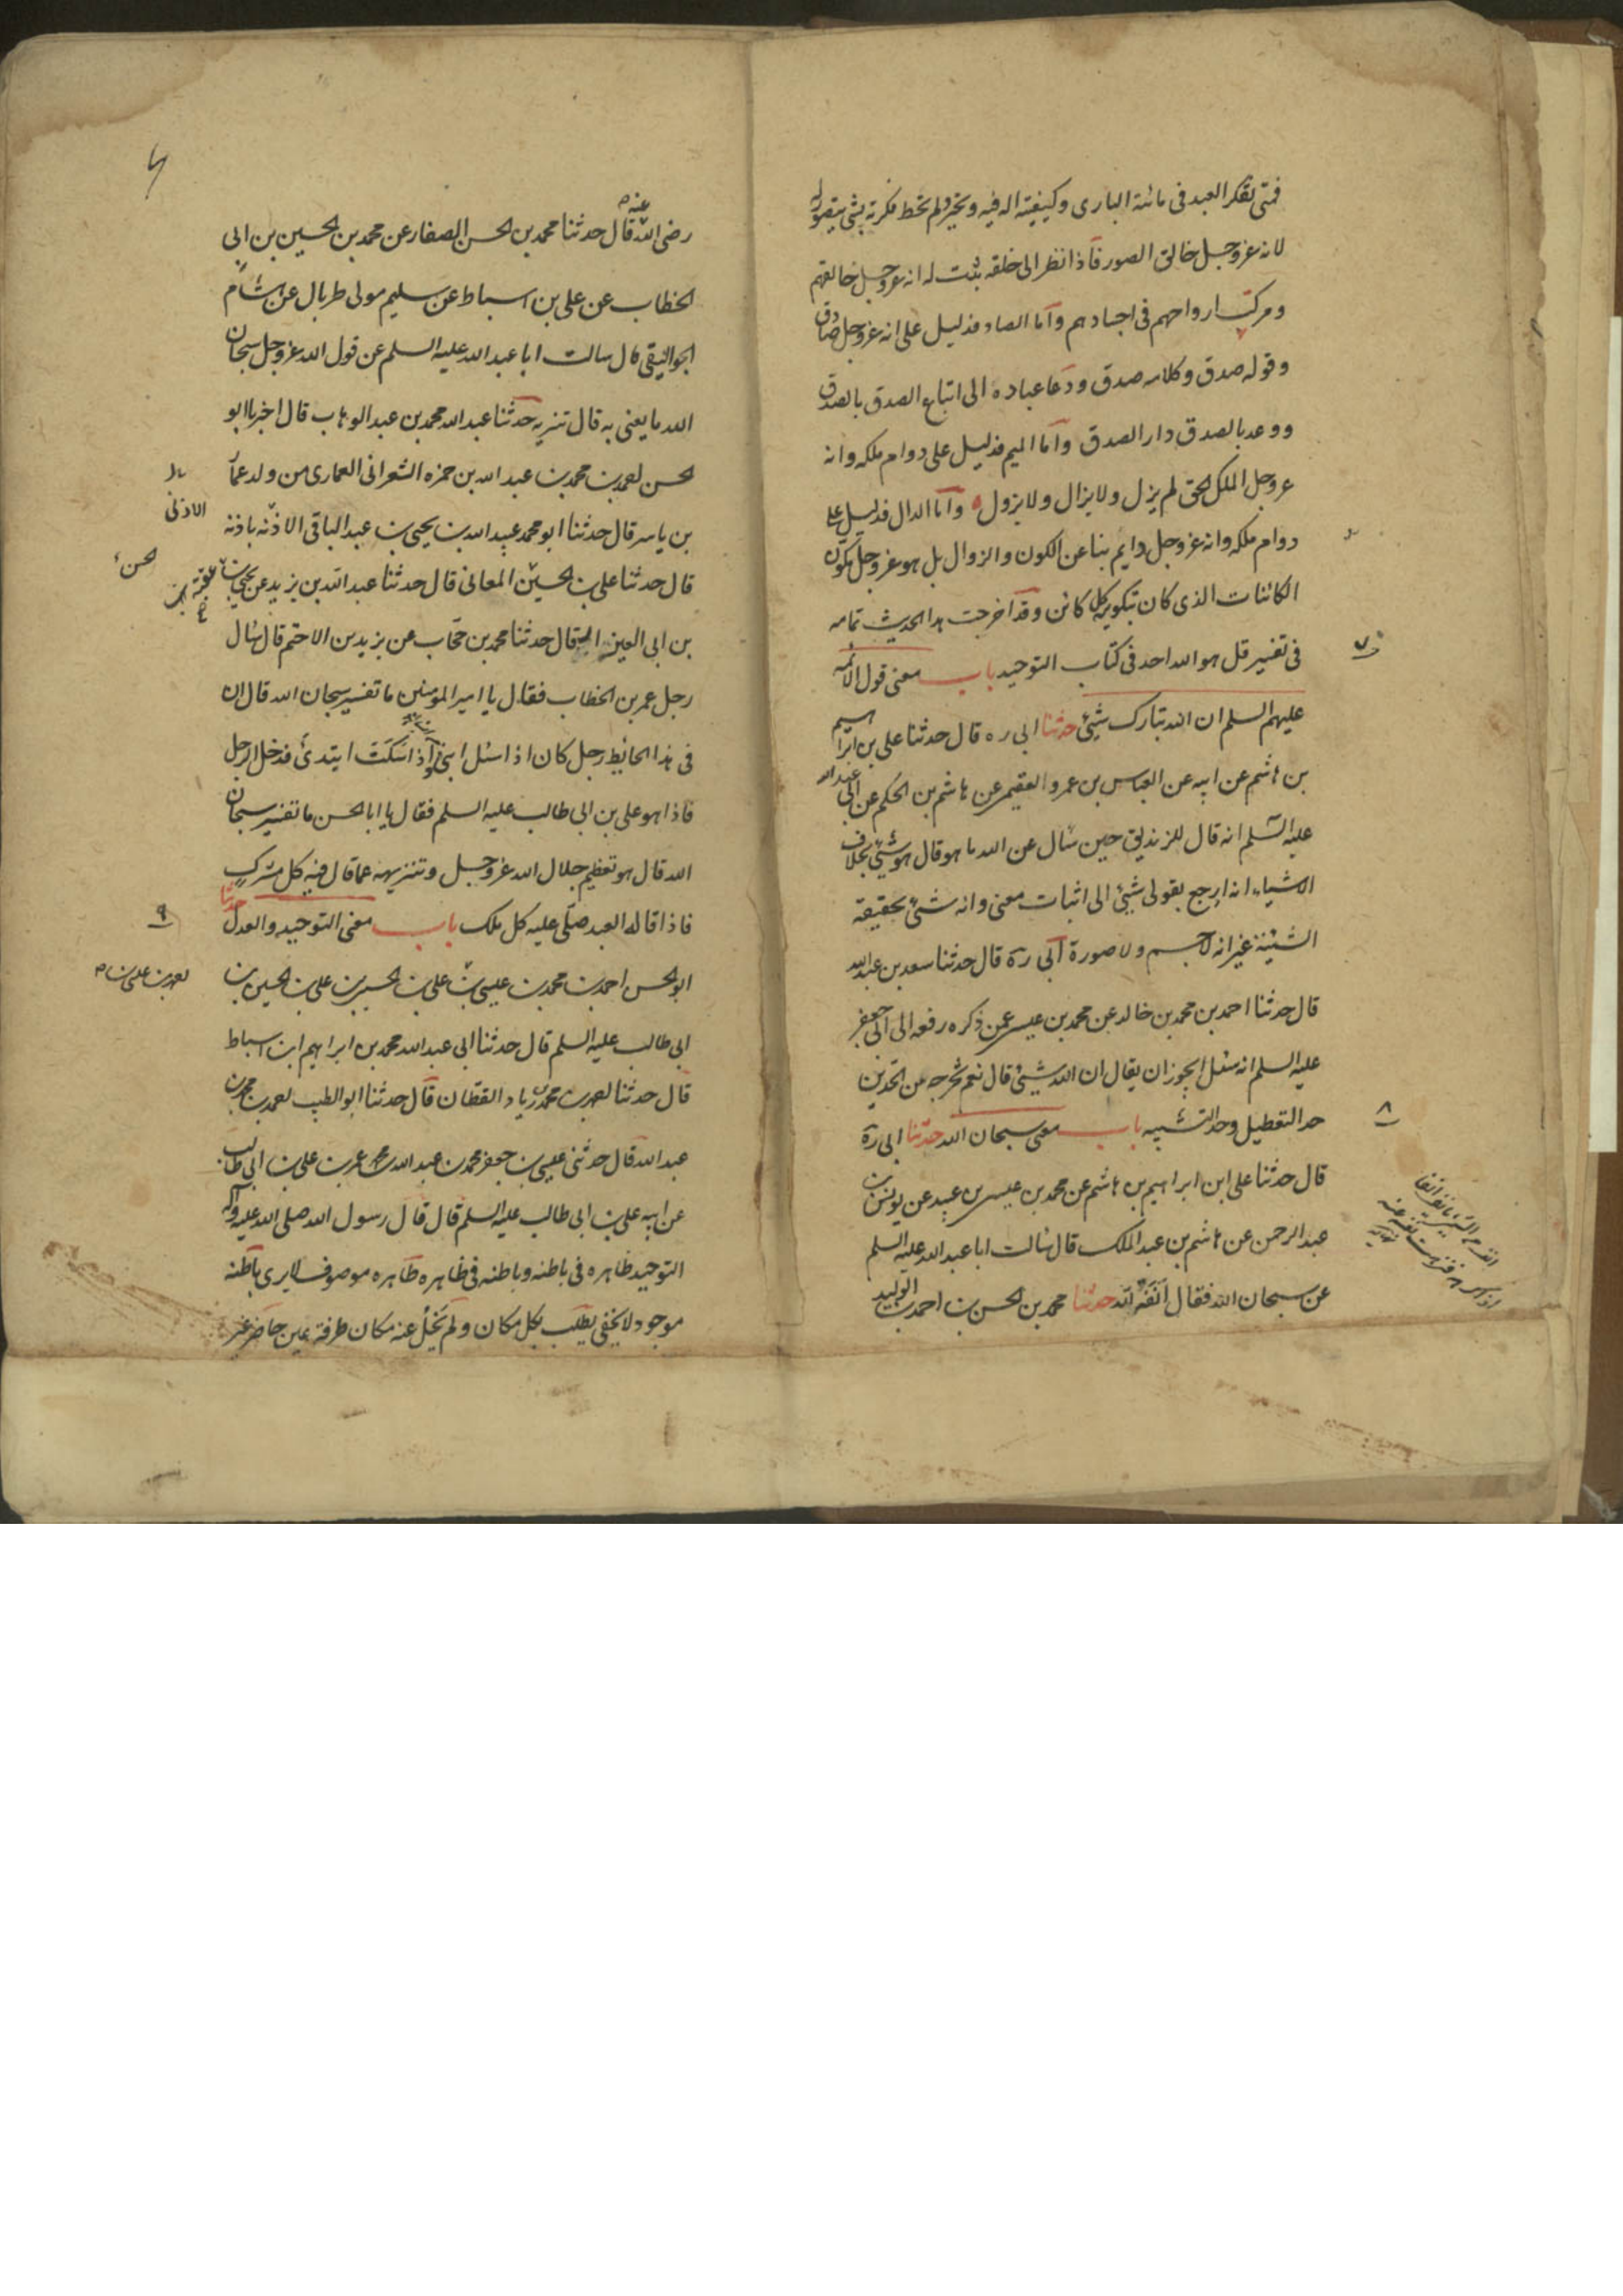 فمتى تفكر العبد في مائية الباري وكيفيته اله فيه وتحير ولم تحط فكرته بشئ يتصور له
لانه عز وجل خالق الصور فاذا نظر الى خلقه ثبت له انه عز وجل خالقهم
ومركب ارواحهم في اجسادهم واما الصاد فدليل على انه عز وجل صادق
وقوله صدق وكلامه صدق ودعا عباده الى اتباع الصدق بالصدق
ووعد بالصدق دار الصدق واما الميم فدليل على دوام ملكه وانه
عز وجل الملك الحق لم يزل ولا يزال ولا يزول واما الدال فدليل على
دوام ملكه وانه عز وجل دايم بنا عن الكون والزوال بل هو عز وجل مكون
الكائنات الذي كان بتكوينه كل كائن وقد اخرجت هذا الحديث بتمامه
في تفسير قل هو الله احد في كتاب التوحيد باب معنى قول الائمه
٧
عليهم السلم ان الله تبارك شيئ حدثنا ابي ره قال حدثنا علي بن ابراهيم
بن هاشم عن ابيه عن العباس بن عمرو الفقيم عن هاشم بن الحكم عن ابي عبد الله
عليه السلم انه قال للزنديق حين سأل عن الله ما هو قال هو شيئ بخلاف
الاشياء انه ارجع بقولي شيئ الى اثبات معنى وانه شئ بحقيقة
الشيئية غير انه لا جسم ولا صورة ابي ره قال حدثنا سعد بن عبد الله
قال حدثنا احمد بن محمد بن خالد عن محمد بن عيسى عمن ذكره رفعه الى ابي جعفر
عليه السلم انه سئل ايجوز ان يقال ان الله شيئ قال نعم تخرجه من الحدين
حد التعطيل وحد التشبيه باب معنى سبحان الله حدثنا ابي ره
٨
قال حدثنا علي ابن ابراهيم بن هاشم عن محمد بن عيسى بن عبيد عن يونس بن
عبد الرحمن عن هاشم بن عبد الملك قال سالت ابا عبد الله عليه السلم
عن سبحان الله فقال انفة لله حدثنا محمد بن الحسن بن احمد بن الوليد
رضى الله عنه قال حدثنا محمد بن الحسن الصفار عن محمد بن الحسين بن ابي
الخطاب عن علي بن اسباط عن سليم مولى طربال عن هشام
الجواليقي قال سالت ابا عبد الله عليه السلم عن قول الله عز وجل سبحان
الله ما يعنى به قال تنزيه حدثنا عبد الله محمد بن عبد الوهاب قال اخبرنا ابو
الحسن احمد بن محمد بن عبد الله بن حمزه الشعراني العماري من ولد عمار
بن ياسر قال حدثنا ابو محمد عبيد الله بن يحيى بن عبد الباقي الاذنه باذنه
الاذني
قال حدثنا علي بن الحسين المعاني قال حدثنا عبد الله بن يزيد عن يحيى بن عقبة
الحسن
بن ابي العيزار قال حدثنا محمد بن حجاب عن يزيد بن الاصم قال سال
رجل عمر بن الخطاب فقال يا امير المؤمنين ما تفسير سبحان الله قال ان
في هذا الحايط رجل كان اذا سئل انبأ واذا سكت ابتدئ فدخل الرجل
فاذا هو علي بن ابي طالب عليه السلم فقال يا ابا الحسن ما تفسير سبحان
الله قال هو تعظيم جلال الله عز وجل وتنزيهه عما قال فيه كل مشرك
فاذا قاله العبد صلى عليه كل ملك باب معنى التوحيد والعدل حدثنا
٩
ابو الحسن احمد بن محمد بن عيسى بن علي بن الحسين بن علي بن الحسين بن
ابي طالب عليه السلم قال حدثنا ابي عبد الله محمد بن ابراهيم ابن اسباط
قال حدثنا احمد بن محمد بن زياد القطان قال حدثنا ابو الطيب احمد بن محمد بن
عبد الله قال حدثني عيسى بن جعفر محمد بن عبد الله بن محمد بن عمر بن علي بن ابي طالب
عن ابيه علي بن ابي طالب عليه السلم قال قال رسول الله صلى الله عليه وآله
التوحيد ظاهره في باطنه وباطنه في ظاهره ظاهره موصوف لا يرى باطنه
موجود لا يخفى يطلب بكل مكان ولم يخل عنه مكان طرفة عين حاضر غير